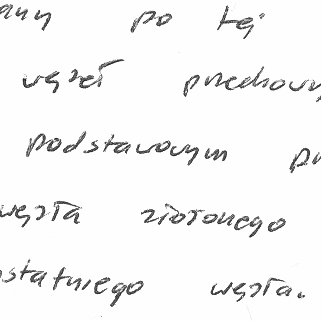 any po tej
węzeł przechowy
podstawowym pr
węzła złożonego
ostatniego węzła.